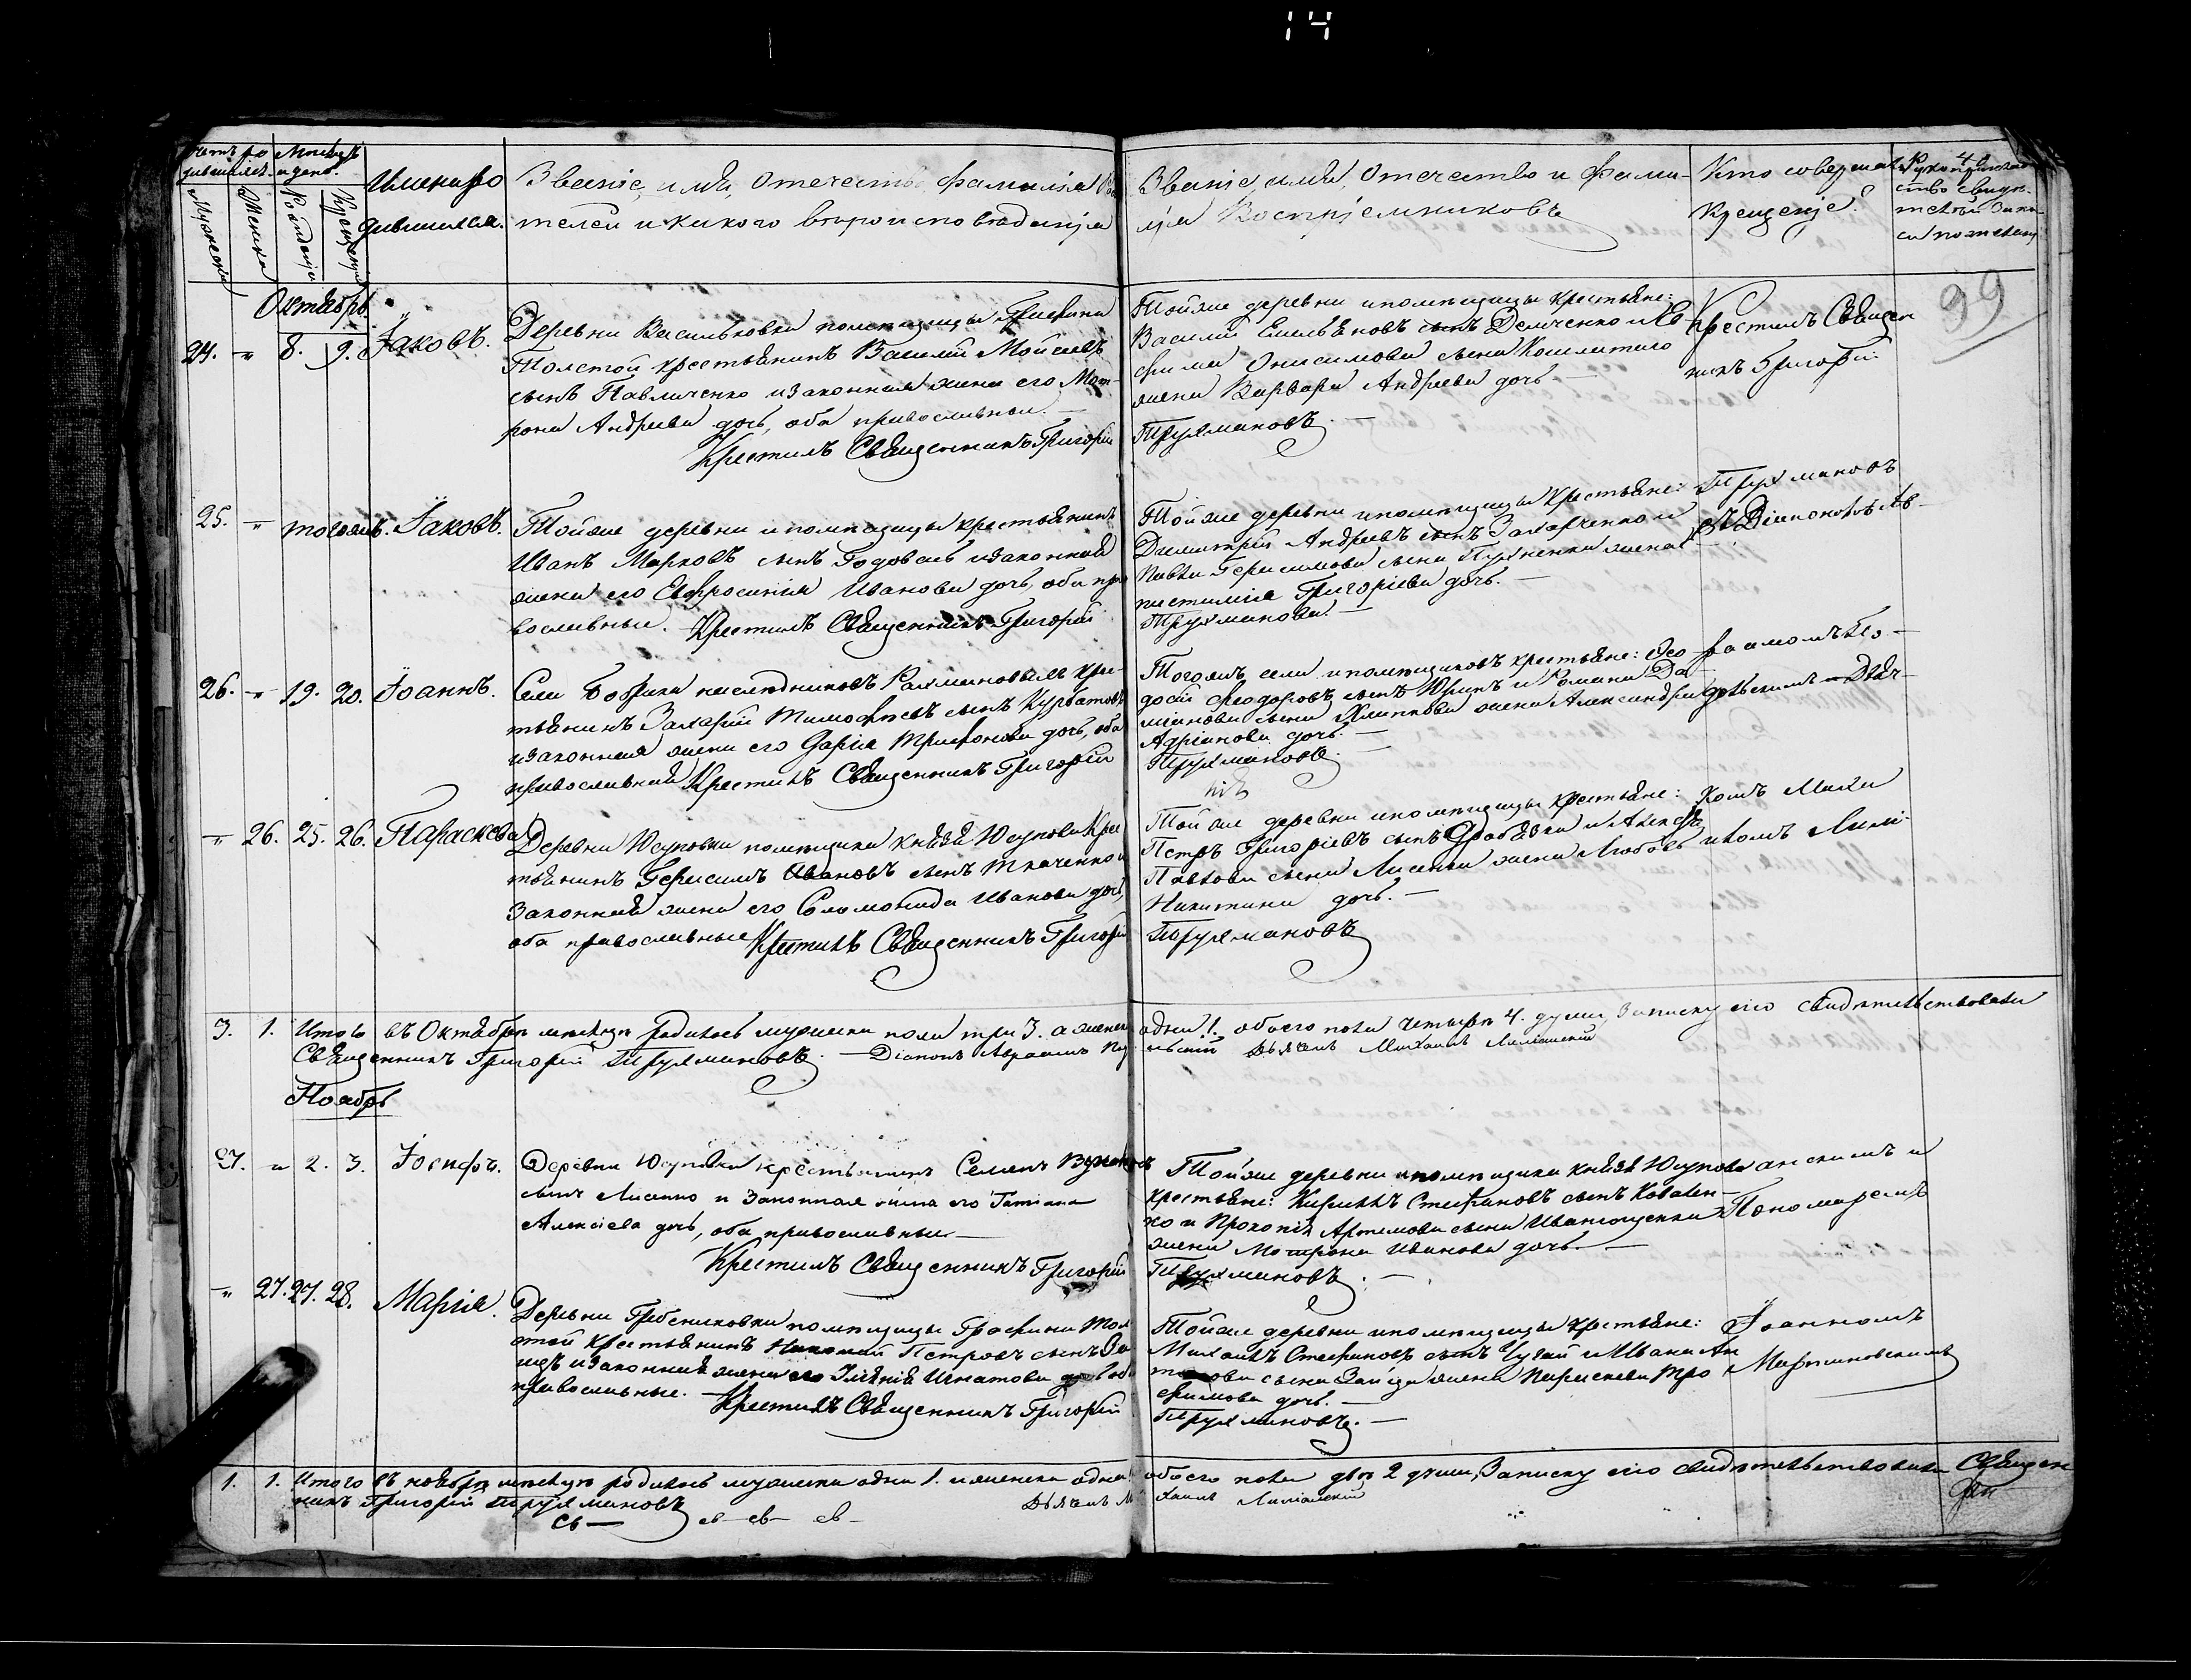 14
99
Имена ро
дившихся.
Званіе, имя, Отечество, фамилія Ро
телей и какого вѣроисповѣданія
Званіе, имя, Отечество и фами-
лія Воспріемниковъ
Кто совершал
Крещеніе?
Рукоприклад
ство свидѣ-
телей запи-
си по желан
Число ро
дившихся.
Мѣсяцъ
и день.
Мужеска
Женска
Рожденія
Крещенія
Октябрь
24. „ 8. 9. Іаковъ.
Деревни Васильковки помѣщицы Графини
Толстой крестьянинъ Василій Мойсеевъ
сынъ Павличенко и законная жена его Мат-
рона Андреева дочь, оба православныи. —
Крестилъ Священникъ Григорій
Тойже деревни и помѣщицы крестьяне:
Василій Емельяновъ сынъ Демченко и Ев-
фима Онисимова сына
жена Варвара Андреева дочь —
Трухмановъ. —
Крестилъ Священ
никъ Григорій
25. „ тогожъ. Іаковъ.
Тойже деревни и помѣщицы крестьянинъ
Иванъ Марковъ сынъ Годовась и законная
жена его Евфросинія Иванова дочь, оба пра
вославныи. Крестилъ Священникъ Григорій
Тойже деревни и помѣщицы Крестьяне:
Димитрій Андреевъ сынъ Захарченко и
Павла Герасимова сына жена А
настасія Григоріева дочь. —
Трухмановъ. —
Трухмановъ
съ Діакономъ Ав-
26. „ 19. 20. Іоаннъ.
Села Бобрика наслѣдниковъ Рахмановыхъ кре-
тьянинъ Захарій Тимофѣевъ сынъ Курбатовъ
и законная жена его Дарія Трифонова дочь, оба
православныи Крестилъ Священникъ Григорій
Тогожъ села и помѣщиковъ крестьяне: Ѳео-
досій Ѳеодоровъ сынъ Юринъ и Романа Да-
міанова сына жена Александра
Адріанова дочь. —
Трухмановъ. —
раамомъ
Дьяч-
„ 26. 25. 26. Параскева
Деревни Юсуповки помѣщика Князя Юсупова Крес
тьянинъ Герасимъ Ивановъ сынъ Ткаченко и
Законная жена его Соломонида Иванова дочь,
оба православные Крестилъ Священникъ Григорій
Той же деревни и помѣщицы крестьяне:
Петръ Григоріевъ сынъ Дробязка и Алексѣя
Павлова сына Лисенка жена Любовь
Никитина дочь. —
Трухмановъ
комъ Миха
иломъ Лим-
3. 1. Итого въ Октябрѣ мѣсяцѣ родилось мужеска пола три 3. а женска одна 1. обоего пола четырѣ 4. души, Записку сію свидѣтельствовали
Священникъ Григорій Трухмановъ. — Діаконъ Авраамъ Дьячокъ Михаилъ Лиманскій
Ноябрь
27. „ 2. 3. Іосифъ.
Деревни Юсуповки крестьянинъ Семенъ
сынъ Лисенко и Законная жена его Татіана
Алексіева дочь, оба православныи —
Крестилъ Священникъ Григорій
Тойже деревни и помѣщика князя Юсупова
крестьяне: Кириллъ Стефановъ сынъ Ковален-
ко и Прокопія Артемова сына Иванющенка
жена Матрона Иванова дочь. —
Трухмановъ. —
анскимъ и
Пономаремъ
„ 27. 27. 28. Марія.
Деревни Гребениковки помѣщицы Графини Тол
стой Крестьянинъ Николай Петровъ сынъ За
яцъ и законная жена его Игнатова дочь оба
православные. — Крестилъ Священникъ Григорій
Тойже деревни и помѣщицы крестьяне:
Михаилъ Стефановъ сынъ Чугай и Ивана Ан
това сына Зайца жена Параскева Тро
фимова дочь. —
Трухмановъ. —
Іоанномъ
Мартиновскимъ
1. 1. Итого въ ноябрѣ мѣсяцѣ родилось мужеска одна 1. и женска одна обоего пола двѣ 2 души, Записку сію свидѣтельствовали Священ
никъ Григорій Трухмановъ Дьячокъ Михаилъ Лиманскій